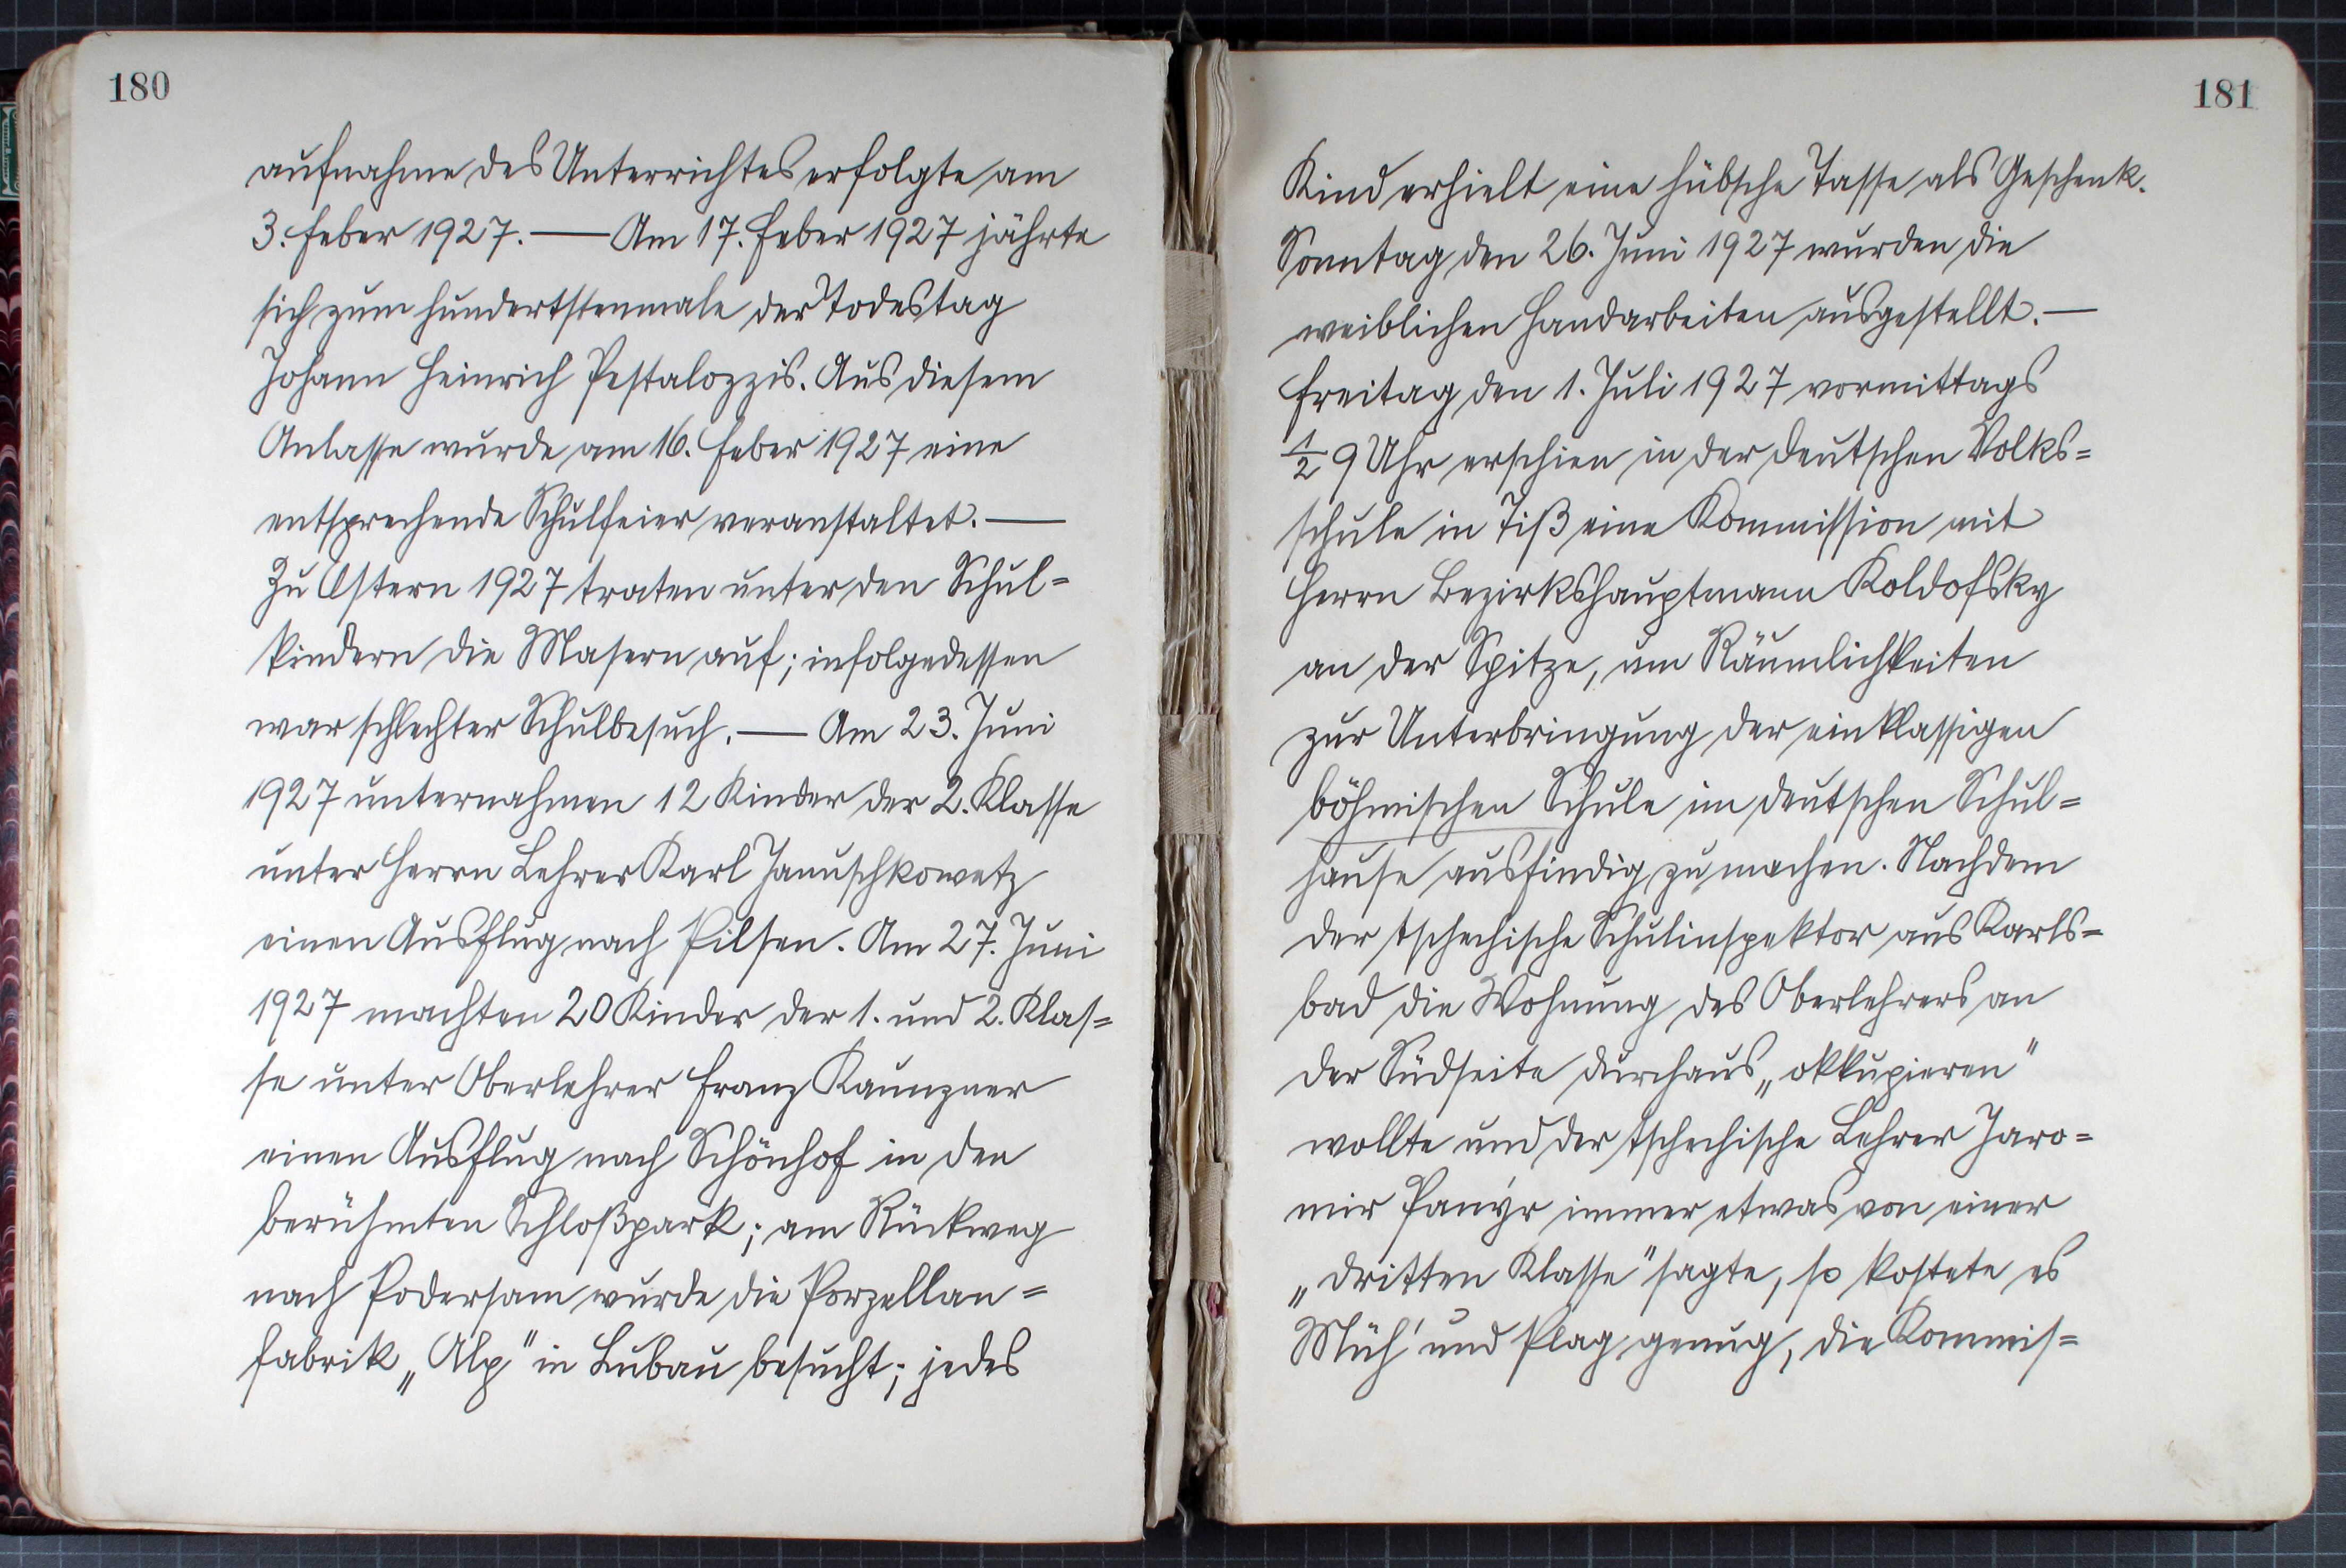 180
aufnahme des Unterrichtes erfolgte am
3. Feber 1927. — Am 17. Feber 1927 jährte
sich zum hundertstenmale der Todestag
Johann Heinrich Pestalozzis. Aus diesem
Anlasse wurde am 16. Feber 1927 eine
entsprechende Schulfeier veranstaltet. —
Zu Ostern 1927 traten unter den Schul=
kindern die Masern auf; infolgedessen
war schlechter Schulbesuch. — Am 23. Juni
1927 unternahmen 12 Kinder der 2. Klasse
unter Herrn Lehrer Karl Januschkowetz
einen Ausflug nach Pilsen. Am 27. Juni
1927 machten 20 Kinder der 1. und 2. Klas=
se unter Oberlehrer Franz Kaunzner
einen Ausflug nach Schönhof in den
berühmten Schloßpark; am Rückweg
nach Podersam wurde die Porzellan=
fabrik „Alp" in Lubau besucht; jedes
181
Kind erhielt eine hübsche Tasse als Geschenk.
Sonntag den 26. Juni 1927 wurden die
weiblichen Handarbeiten ausgestellt. —
Freitag den 1. Juli 1927 vormittags
½ 9 Uhr erschien in der deutschen Volks=
schule in Tiß eine Kommission mit
Herrn Bezirkshauptmann Koldofsky
an der Spitze, um Räumlichkeiten
zur Unterbringung der einklassigen
böhmischen Schule im deutschen Schul=
hause ausfindig zu machen. Nachdem
der tschechische Schulinspektor aus Karls=
bad die Wohnung des Oberlehrers an
der Südseite durchaus „okkupieren"
wollte und der tschechische Lehrer Jaro=
mir Panýr immer etwas von einer
„dritten Klasse" sagte, so kostete es
Müh' und Plag genug, die Kommis=